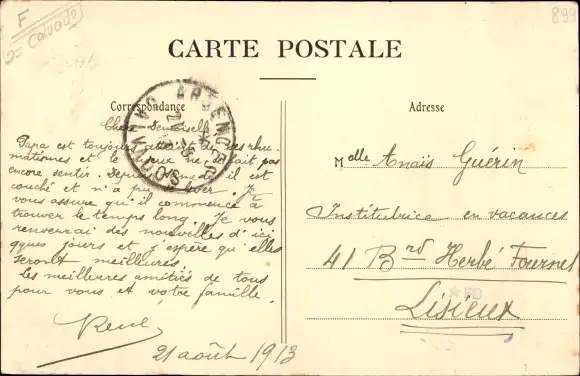 F
Calvados
899
CARTE POSTALE
Correspondance
Adresse
ARGENCES
CALVADOS
Chère Demoiselle
Papa est toujours atteint de ses rhu-
matismes et le mieux ne se fait pas
encore sentir. Depuis il est
couché et n'a pu se lever. Je
vous assure qu'il commence à
trouver le temps long. Je vous
renverrai des nouvelles d'ici
qques jours et j'espère qu'elles
seront meilleures.
Les meilleures amitiés de tous
pour vous et votre famille.
René
21 août 1913
Melle Anaïs Guérin
Institutrice en vacances
41 Brd Herbé Fournet
Lisieux